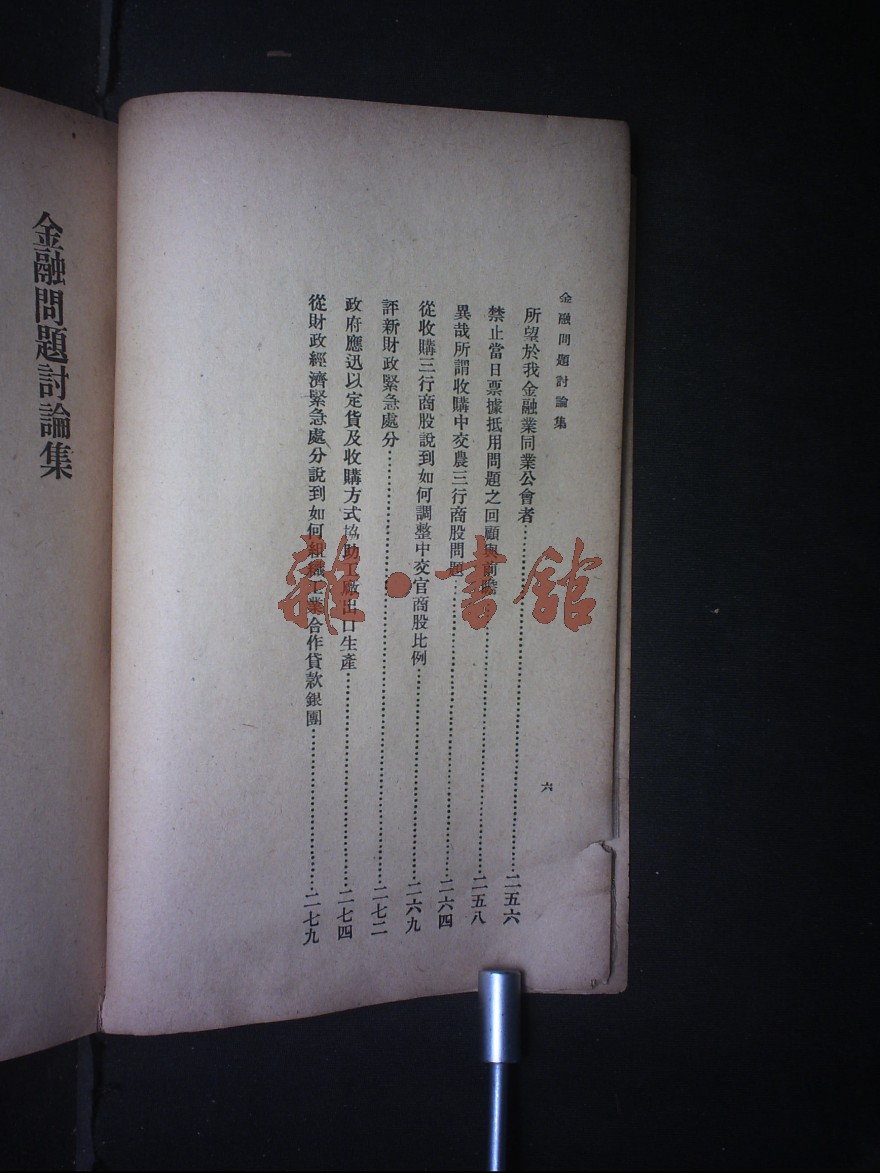 金融問題討論集
六
所望於我金融業同業公會者……二五六
禁止當日票據抵用問題之回顧與前瞻……二五八
異哉所謂收購中交農三行商股問題……二六四
從收購三行商股說到如何調整中交官商股比例……二六九
評新財政緊急處分……二七二
政府應迅以定貨及收購方式協助工廠出口生產……二七四
從財政經濟緊急處分說到如何組織工業合作貸款銀團……二七九
金融問題討論集
雜·書館